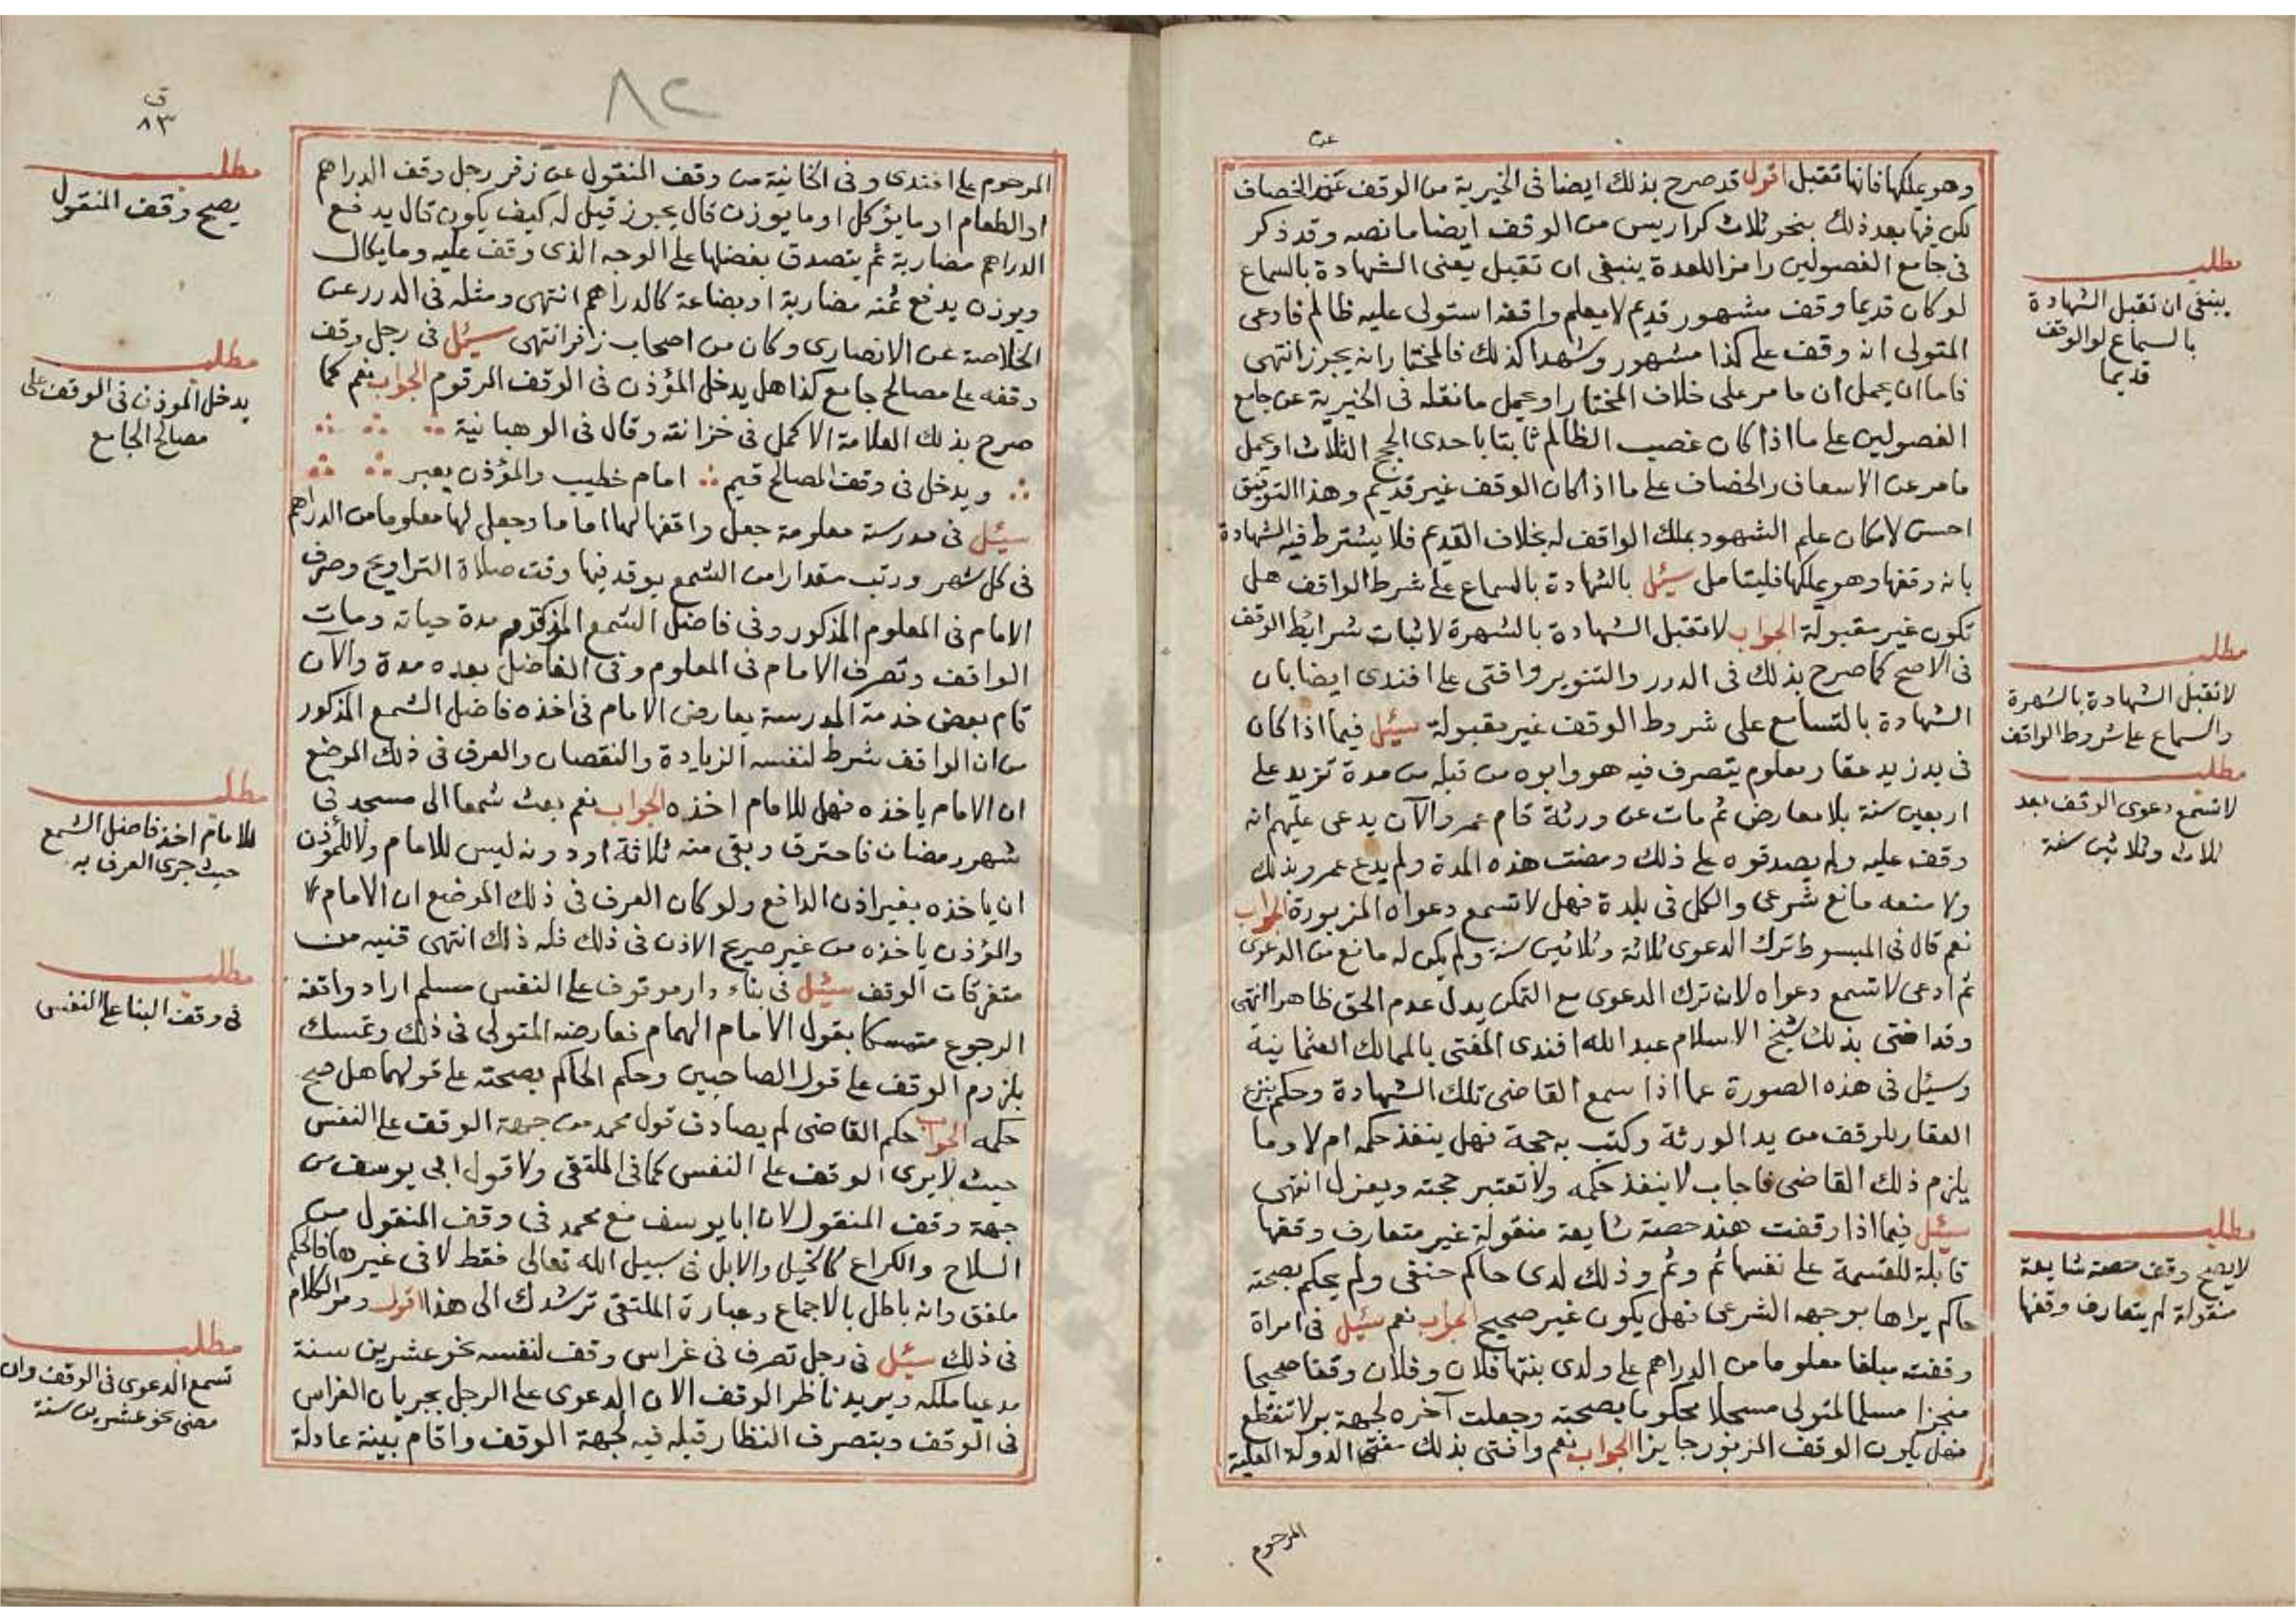 وهو يملكها فانها تقبل اقول قد صرح بذلك ايضا فى الخيرية من الوقف عن الخصاف
لكن فيها بعد ذلك بنحو ثلاث كراريس من الوقف ايضا ما نصه وقد ذكر
فى جامع الفصولين رامزا للعدة ينبغى ان تقبل يعنى الشهادة بالسماع
لو كان قديما وقف مشهور قديم لا يعلم واقفه استولى عليه ظالم فادعى
المتولى انه وقف على كذا مشهور وشهدا كذلك فالمختار انه يجوز انتهى
فاما ان يحمل ان ما مر على خلاف المختار او يحمل ما نقله فى الخيرية عن جامع
الفصولين على ما اذا كان غصب الظالم ثابتا باحدى الحجج الثلاث او يحمل
ما مر عن الاسعاف والخصاف على ما اذا كان الوقف غير قديم وهذا التوفيق
احسن لامكان علم الشهود بملك الواقف له بخلاف القديم فلا يشترط فيه الشهادة
بانه وقفها وهو يملكها فليتامل سئل بالشهادة بالسماع على شرط الواقف هل
تكون غير مقبولة الجواب لا تقبل الشهادة بالشهرة لاثبات شرايط الوقف
فى الاصح كما صرح بذلك فى الدرر والتنوير وافتى على افندى ايضا بان
الشهادة بالتسامع على شروط الوقف غير مقبولة سئل فيما اذا كان
فى يد زيد عقار معلوم يتصرف فيه هو وابوه من قبله من مدة تزيد على
اربعين سنة بلا معارض ثم مات عن ورثة قام عمر والآن يدعى عليهم انه
وقف عليه ولم يصدقوه على ذلك ومضت هذه المدة ولم يدع عمرو بذلك
ولا منعه مانع شرعى والكل فى بلدة فهل لا تسمع دعواه المزبورة الجواب
نعم قال فى المبسوط ترك الدعوى ثلاثة وثلاثين سنة ولم يكن له مانع من الدعوى
ثم ادعى لا تسمع دعواه لان ترك الدعوى مع التمكن يدل عدم الحق ظاهرا انتهى
وقد افتى بذلك شيخ الاسلام عبد الله افندى المفتى بالممالك العثمانية
وسئل فى هذه الصورة عما اذا سمع القاضى تلك الشهادة وحكم بنزع
العقار للوقف من يد الورثة وكتب به حجة فهل ينفذ حكمه ام لا وما
يلزم ذلك القاضى فاجاب لا ينفذ حكمه ولا تعتبر حجته ويعزل انتهى
سئل فيما اذا وقفت هند حصة شايعة منقولة غير متعارف وقفها
قابلة للقسمة على نفسها ثم وثم وذلك لدى حاكم حنفى ولم يحكم بصحته
حاكم يراها بوجهه الشرعى فهل يكون غير صحيح الجواب نعم سئل فى امراة
وقفت مبلغا معلوما من الدراهم على ولدى بنتها فلان وفلان وقفا صحيحا
منجزا مسلما لمتولى مسجلا محكوما بصحته وجعلت آخره لجهة بر لا تنقطع
فهل يكون الوقف المزبور جايزا الجواب نعم وافتى بذلك مفتى الدولة العلية
المرحوم
مطلب
ينبغى ان تقبل الشهادة
بالسماع لو الوقف
قديما
مطلب
لا تقبل الشهادة بالشهرة
والسماع على شروط الواقف
مطلب
لا تسمع دعوى الوقف بعد
ثلاث وثلاثين سنة
مطلب
لا يصح وقف حصة شايعة
منقولة لم يتعارف وقفها
٨٢
ق
٨٣
المرحوم على افندى وفى الخانية من وقف المنقول عن زفر رجل وقف الدراهم
او الطعام او ما يؤكل او ما يوزن قال يجوز قيل له كيف يكون قال يدفع
الدراهم مضاربة ثم يتصدق بفضلها على الوجه الذى وقف عليه وما يكال
ويوزن يدفع ثمنه مضاربة او بضاعة كالدراهم انتهى ومثله فى الدرر عن
الخلاصة عن الانصارى وكان من اصحاب زفر انتهى سئل فى رجل وقف
وقفه على مصالح جامع كذا هل يدخل المؤذن فى الوقف المرقوم الجواب نعم كما
صرح بذلك العلامة الاكمل فى خزانته وقال فى الوهبانية
ويدخل فى وقف المصالح قيم امام خطيب والمؤذن يعبر
سئل فى مدرسة معلومة جعل واقفها لها اماما وجعل لها معلوما من الدراهم
فى كل شهر ورتب مقدارا من الشمع يوقد فيها وقت صلاة التراويح وصرف
الامام فى المعلوم المذكور وفى فاضل الشمع المرقوم مدة حياته ومات
الواقف وتصرف الامام فى المعلوم وفى الفاضل بعده مدة والآن
قام بعض خدمة المدرسة يعارض الامام فى اخذه فاضل الشمع المذكور
من ان الواقف شرط لنفسه الزيادة والنقصان والعرف فى ذلك الموضع
ان الامام ياخذه فهل للامام اخذه الجواب نعم بعث شمعا الى مسجد فى
شهر رمضان فاحترق وبقى منه ثلاثة او دونه ليس للامام ولا للمؤذن
ان ياخذه بغير اذن الدافع ولو كان العرف فى ذلك الموضع ان الامام
والمؤذن ياخذه من غير صريح الاذن فى ذلك فله ذلك انتهى قنيه من
متفرقات الوقف سئل فى بناء دار موقوف على النفس مسلم اراد واقفه
الرجوع متمسكا بقول الامام الهمام فعارضه المتولى فى ذلك وتمسك
بلزوم الوقف على قول الصاحبين وحكم الحاكم بصحته على قولهما هل صح
حكمه الجواب حكم القاضى لم يصادف قول محمد من جهة الوقف على النفس
حيث لا يرى الوقف على النفس كما فى الملتقى ولا قول ابى يوسف من
جهة وقف المنقول لان ابا يوسف مع محمد فى وقف المنقول من
السلاح والكراع كالخيل والابل فى سبيل الله تعالى فقط لا فى غيرها فالحكم
ملفق وانه باطل بالاجماع وعبارة الملتقى ترشدك الى هذا اقول ومر الكلام
فى ذلك سئل فى رجل تصرف فى غراس وقف لنفسه نحو عشرين سنة
مدعيا ملكه ويريد ناظر الوقف الان الدعوى على الرجل بجريان الغراس
فى الوقف وبتصرف النظار قبله فيه لجهة الوقف واقام بينة عادلة
مطلب
يصح وقف المنقول
مطلب
يدخل الموذن فى الوقف على
مصالح الجامع
مطلب
للامام اخذ فاضل الشمع
حيث جرى العرف به
مطلب
فى وقف البنا على النفس
مطلب
تسمع الدعوى فى الوقف وان
مضى نحو عشرين سنة